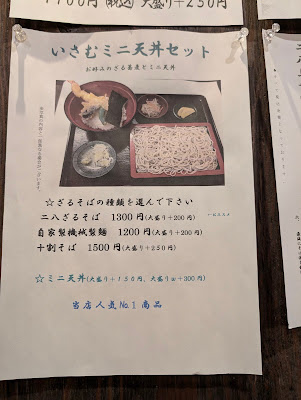 (税込) 大盛り+250円
いさむミニ天丼セット
お好みのざる蕎麦とミニ天丼
☆ざるそばの種類を選んで下さい
二八ざるそば 1300円(大盛り+200円)
自家製機械製麺 1200円(大盛り+200円)
十割そば 1500円(大盛り+250円)
☆ミニ天丼(大盛り+150円、大盛りw+300円)
当店人気No.1商品